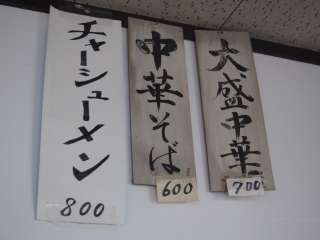 チャーシューメン
800
中華そば
600
大盛中華
700